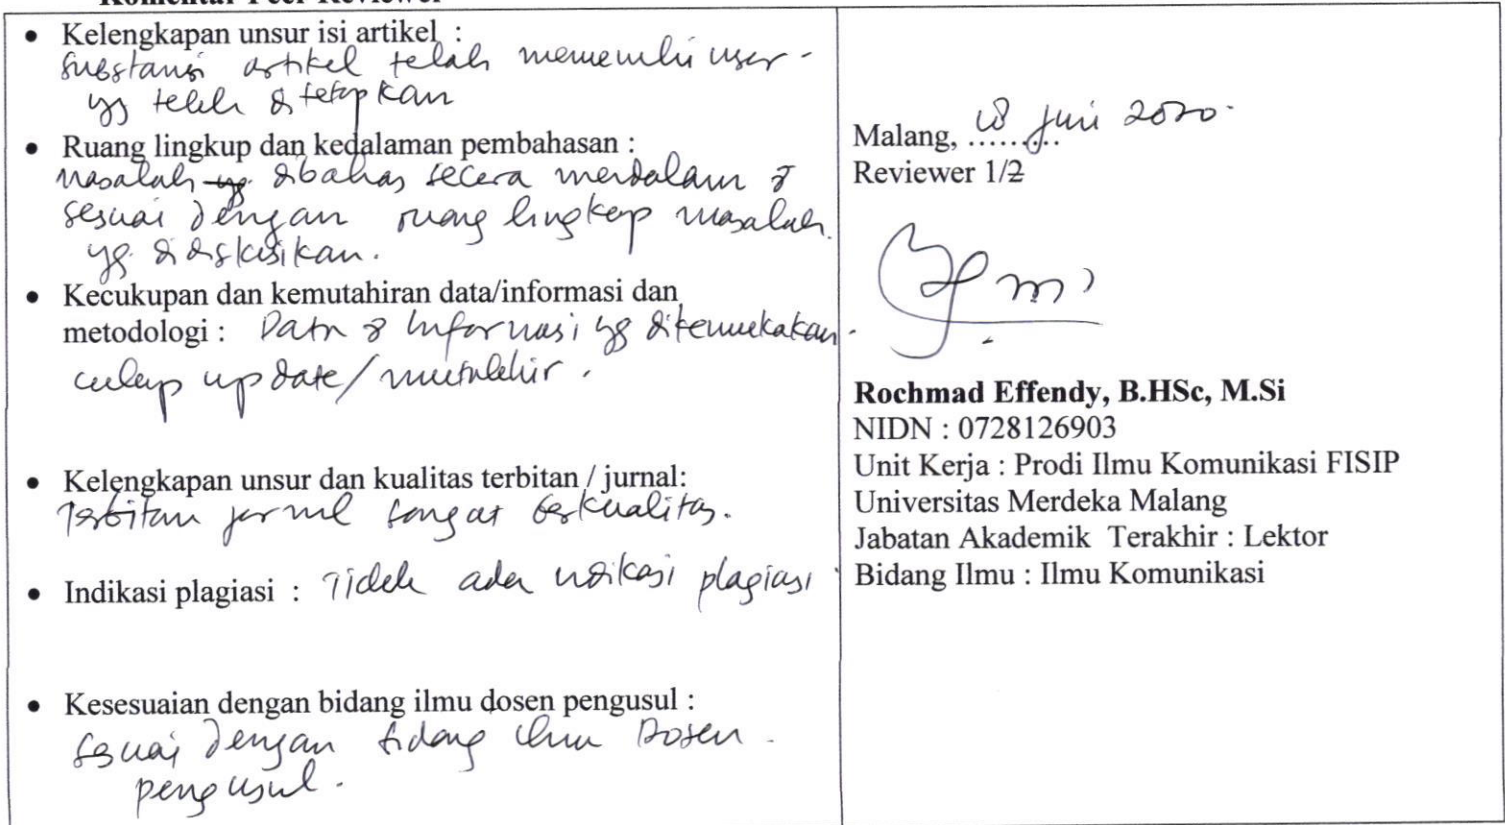 Komentar Peer Reviewer
• Kelengkapan unsur isi artikel :
substansi artikel telah memenuhi unsur
yg telah ditetapkan
• Ruang lingkup dan kedalaman pembahasan :
Masalah yg dibahas secara mendalam &
sesuai dengan ruang lingkup masalah
yg didiskusikan.
• Kecukupan dan kemutahiran data/informasi dan
metodologi : Data & Informasi yg ditemukakan
cukup update/mutakhir.
• Kelengkapan unsur dan kualitas terbitan / jurnal:
Terbitan jurnal sangat berkualitas.
• Indikasi plagiasi : Tidak ada indikasi plagiasi
• Kesesuaian dengan bidang ilmu dosen pengusul :
Sesuai dengan bidang ilmu Dosen
pengusul.
Malang, ......... Juni 2020
Reviewer 1/2
Rochmad Effendy, B.HSc, M.Si
NIDN : 0728126903
Unit Kerja : Prodi Ilmu Komunikasi FISIP
Universitas Merdeka Malang
Jabatan Akademik Terakhir : Lektor
Bidang Ilmu : Ilmu Komunikasi